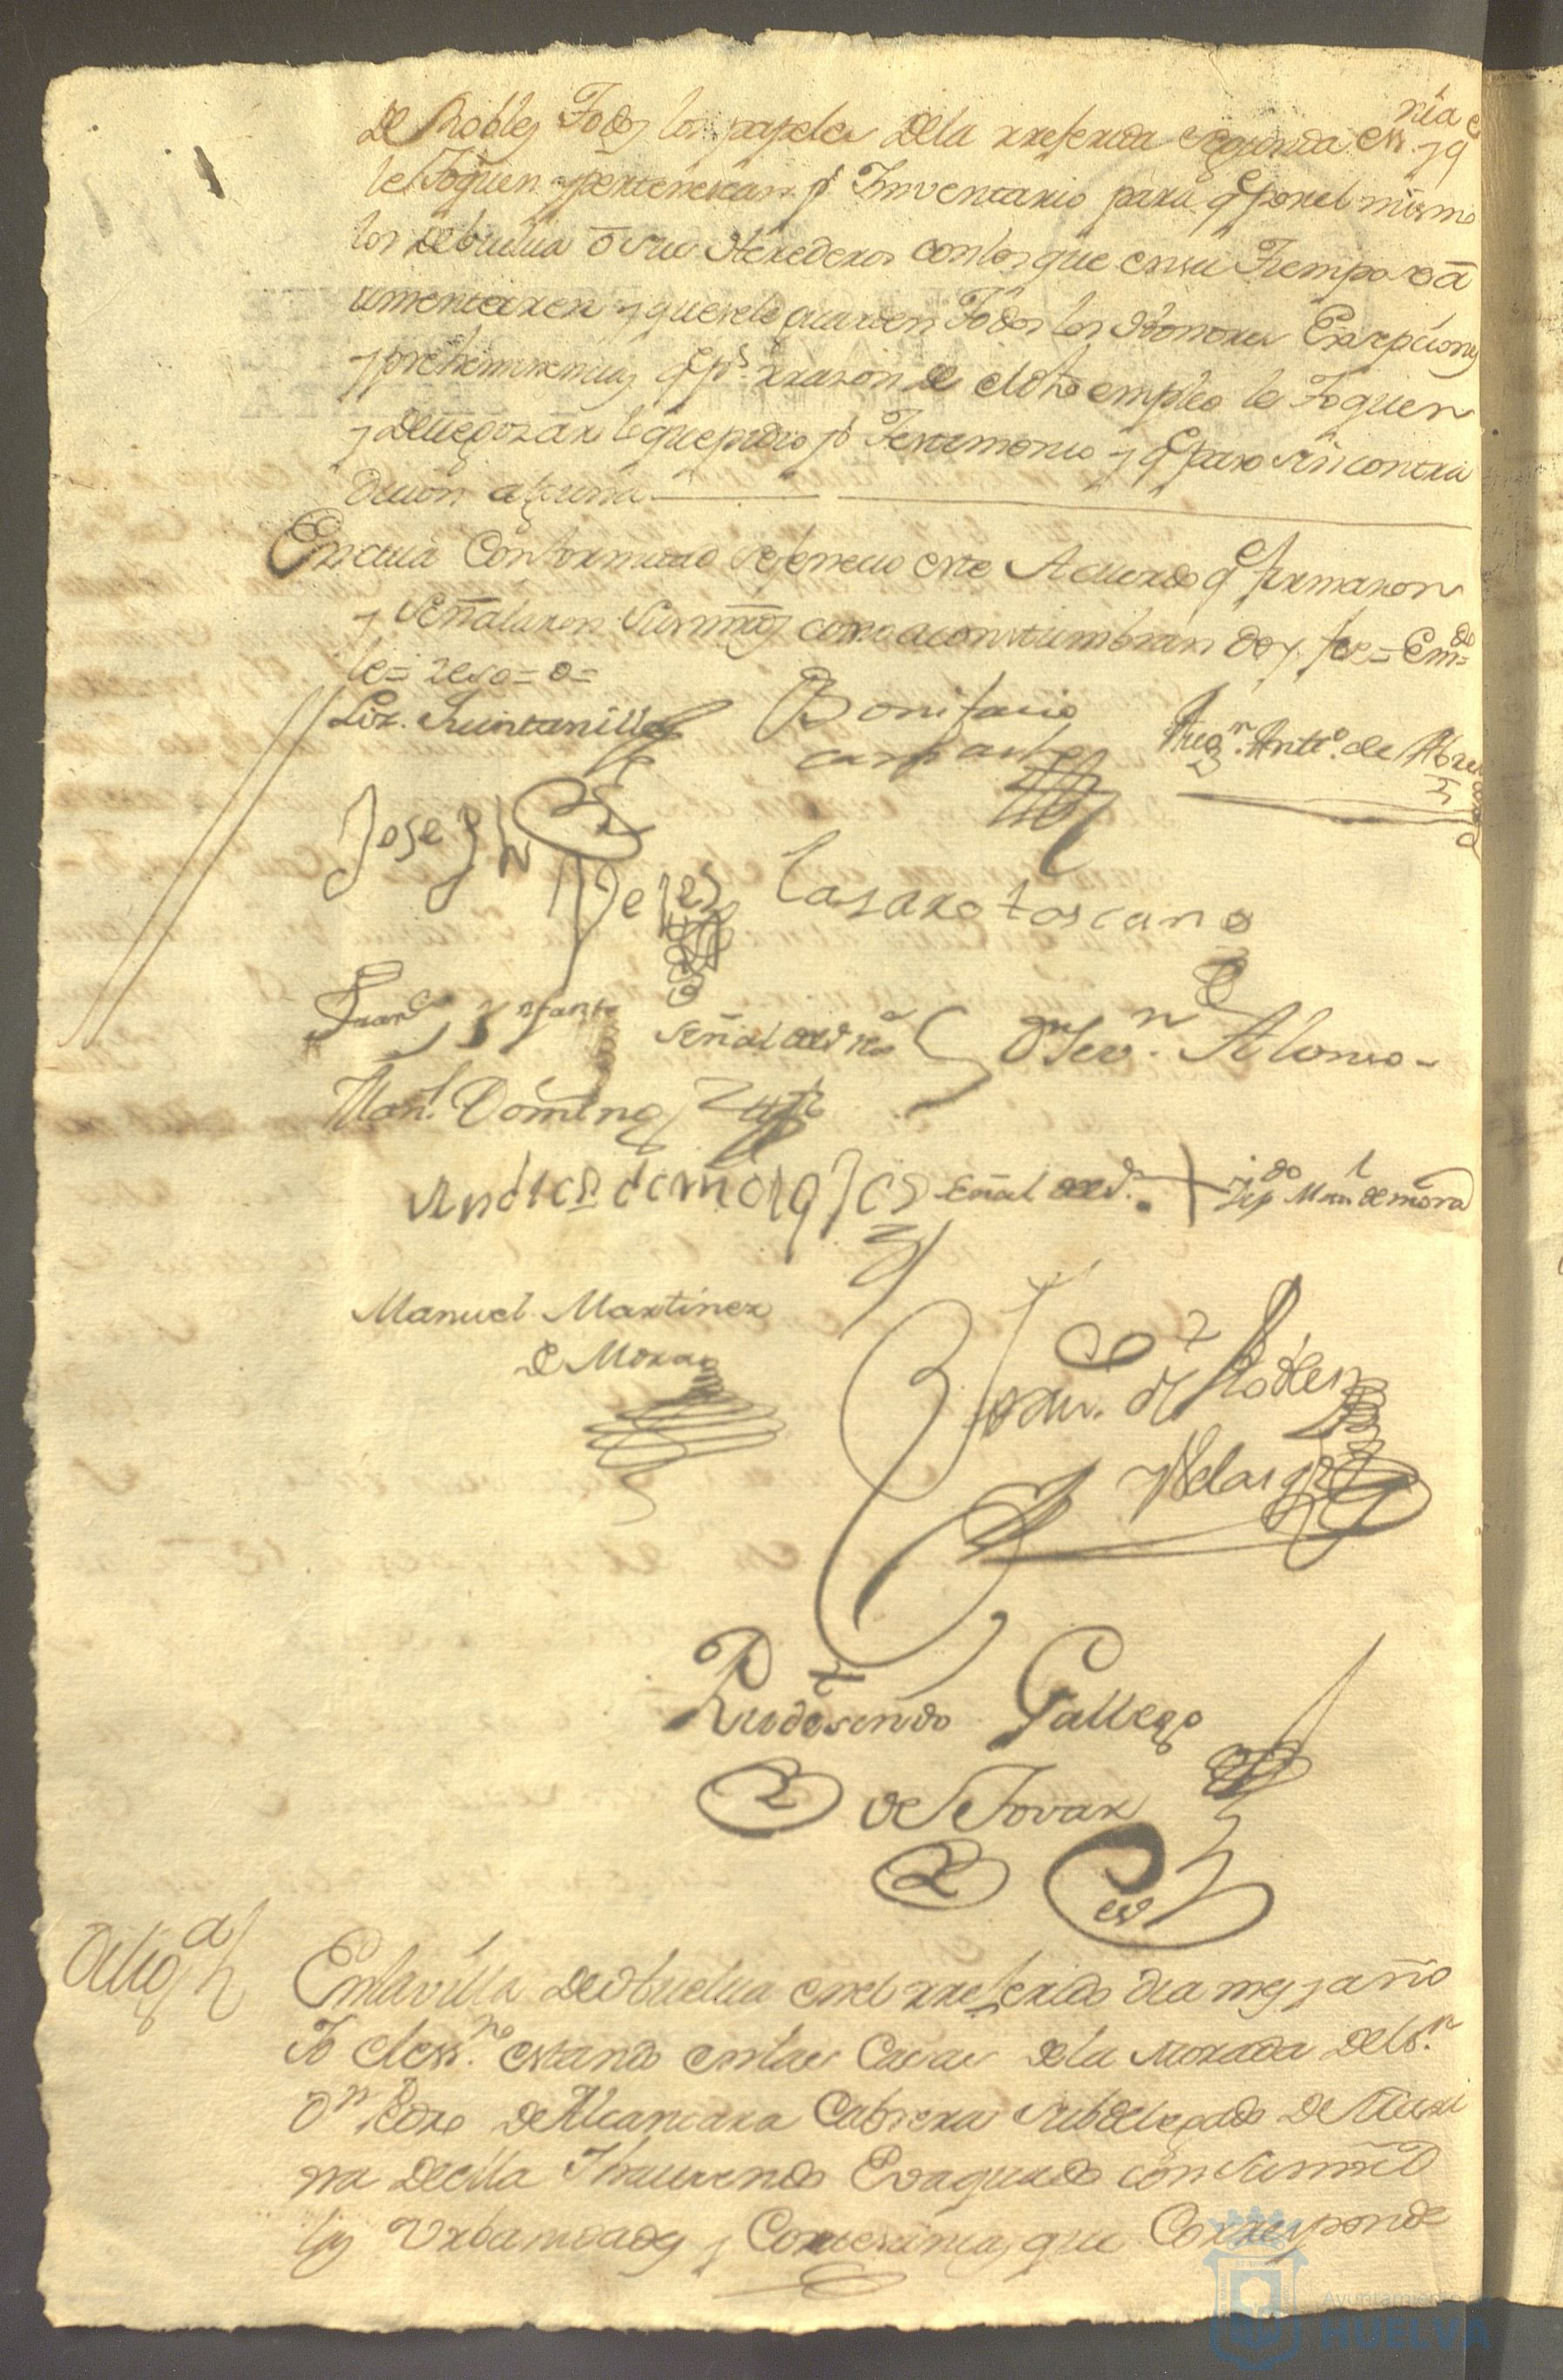 de Robles Todos los papeles de la rreferida segunda ess.ria y q
le toquen y pertenescan p.r Imventario para q por el mismo
los debuelua o sus Herederos con los que en su Tiempo se a
umentaren y que se le guarden Todos los Honores Exsepciones
y prehemminencias q p.r rrason de el dho empleo le Toquen
y deue gozar lo que pidio p.r Testimonio y q paso sin contra
dicion alguna
En cuia Conformidad se feneció este Acuerdo q firmaron
y señalaron sus mrds como acostumbran doy fee = Em.do
le = = o =
Liz. Quintanilla
Bonifacio
Juan Ant.o de Abreu
Joseph
de
Lasaro toscano
Fran.co Ynfante
Señal de
D.n Sev.n Alonso
Man.l Doming
Andres de marques
señal de
Dip.do Man.l de mora
Manuel Martinez
de Mora
de Robles
y Velasq.z
Rudesindo Gallego
de Tovar
es.no
Dilig.a
En la villa de Huelua en el rreferido dia mes y año
Yo el ess.no estando en las Casas de la morada del s.r
D.n Pedro de Alcantara Cabrera subdelegado de Mari
na de ella Hauiendo Evaquado con su mrd
las Urbanidades y Cortesanias que Corresponde
Ayuntamiento
HUELVA